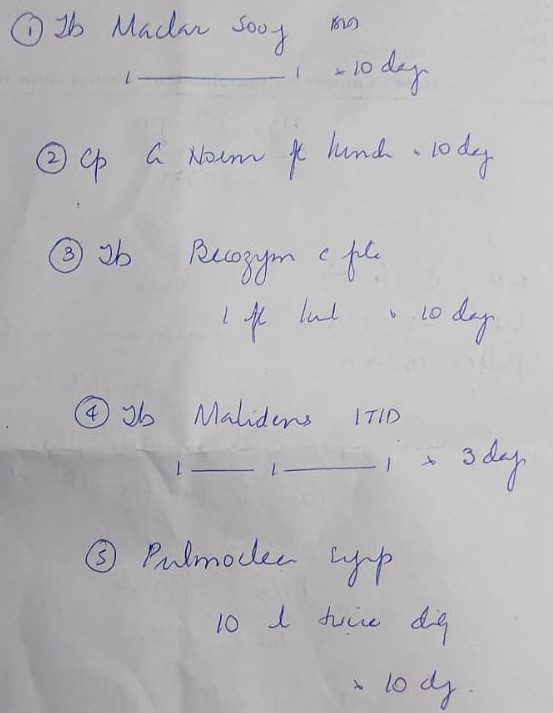 ① Tb Maclar 500g BD
1 ——— 1 x 10 day
② Cp G Norm ft lunch x 10 day
③ Tb Becozym c fte
1 ft x 10 day
④ Tb Malidens 1TID
1 —— 1 —— 1 x 3 day
⑤ Pulmoclear syp
10 l twice dig
x 10 dy.